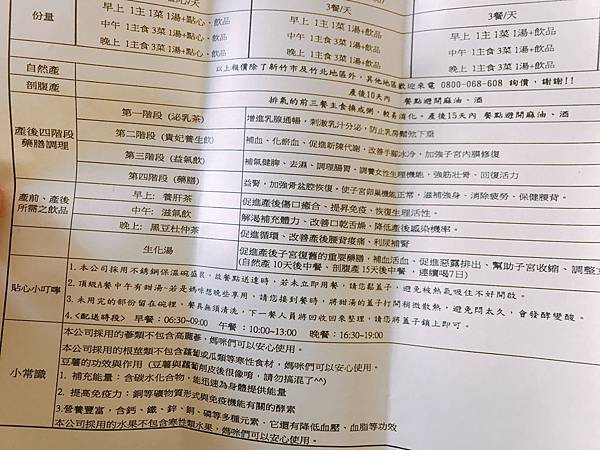 3餐/天
份量
早上 1主 1菜 1湯+點心、飲品
中午 1主食 3菜 1湯+點心、飲品
晚上 1主食 3菜 1湯+點心、飲品
早上 1主 1菜 1湯+飲品
中午 1主食 3菜 1湯+飲品
晚上 1主食 3菜 1湯+飲品
早上 1主 1菜 1湯+飲品
中午 1主食 3菜 1湯+飲品
晚上 1主食 3菜 1湯+飲品
以上報價除了新竹市及竹北地區外,其他地區歡迎來電 0800-068-608 詢價,謝謝!!
自然產
產後10天內 餐點避開麻油、酒
剖腹產
排氣的前三餐主食換成粥,較易消化。產後15天內 餐點避開麻油、酒
產後四階段
藥膳調理
第一階段 (泌乳茶)
增進乳腺通暢,刺激乳汁分泌,防止乳房鬆弛下垂
第二階段 (貴妃養生飲)
補血、化瘀血、促進新陳代謝,改善手腳冰冷、加強子宮內膜修復
第三階段 (益氣飲)
補氣健脾、去濕、調理腸胃,調養女性生理機能,強筋壯骨、回復活力
第四階段 (藥膳)
益腎,加強骨盆腔恢復,使子宮卵巢機能正常,滋補強身、消除疲勞、保健腰背。
產前、產後
所需之飲品
早上: 養肝茶
促進產後傷口癒合、提昇免疫、恢復生理活性。
中午: 滋氣飲
解渴補充體力、改善口乾舌燥、降低產後感染機率。
晚上: 黑豆杜仲茶
促進循環、改善產後腰背痠痛、利尿補腎
生化湯
促進產後子宮復舊的重要藥膳、補血活血、促進惡露排出、幫助子宮收縮、調整
(自然產 10天後中餐、剖腹產 15天後中餐 ,連續喝7日)
貼心小叮嚀
1.本公司採用不銹鋼保溫碗盛裝,故餐點送達時,若未立即用餐,請您鬆蓋子,避免被熱氣吸住不好開啟。
2.頂級A餐中午有甜湯-若是媽咪想晚些享用,請您接到餐時,將甜湯的蓋子打開稍微散熱,避免悶太久,會發酵變酸。
3.未用完的部份留在碗裡,餐具無須清洗,下一餐人員將回收回來整理,請您將蓋子鎖上即可。
4.<配送時段> 早餐:06:30~09:00 午餐:10:00~13:00 晚餐:16:30~19:00
小常識
本公司採用的蔘類不包含高麗蔘,媽咪們可以安心使用。
本公司採用的根莖類不包含蘿蔔或瓜類等寒性食材,媽咪們可以安心使用。
豆薯的功效與作用 (豆薯與蘿蔔削皮後很像唷,請勿搞混了^^)
1. 補充能量:含碳水化合物,能迅速為身體提供能量
2. 提高免疫力:銅等礦物質形式與免疫機能有關的酵素
3.營養豐富,含鈣、鐵、鋅、銅、磷等多種元素,它還有降低血壓、血脂等功效
本公司採用的水果不包含寒性類水果,媽咪們可以安心使用。